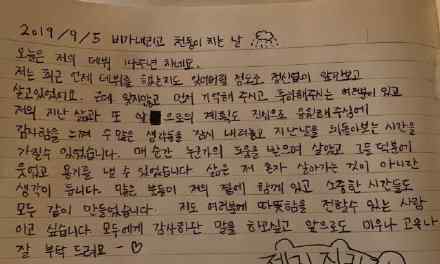 2019/9/5 비가내리고 천둥이 치는 날
오늘은 저의 데뷔 14주년 차네요.
저는 최근 언제 데뷔를 했는지도 잊어버릴 정도로 정신없이 앞만보고
살고있었어요. 근데 잊지않고 먼저 기억해 주시고 축하해주시는 여러분이 있고
저의 지난 삶과 또 앞으로의 계획도 진심으로 응원해주심에
감사함을 느껴 수많은 생각들을 잠시 내려놓고 지난날을 되돌아보는 시간을
가질수 있었습니다. 매 순간 누군가의 도움을 받으며 살았고 그들 덕분에
웃었고 용기를 낼 수 있었습니다. 삶은 저 혼자 살아가는 것이 아니란
생각이 듭니다. 많은 분들이 저의 곁에 함께 있고 소중한 시간들도
모두 같이 만들었습니다. 저도 여러분께 따뜻함을 전할수 있는 사람
이고 싶습니다. 모두에게 감사하단 말을 하고싶고 앞으로도 미우나 고우나
잘 부탁 드려요 ~ ♡